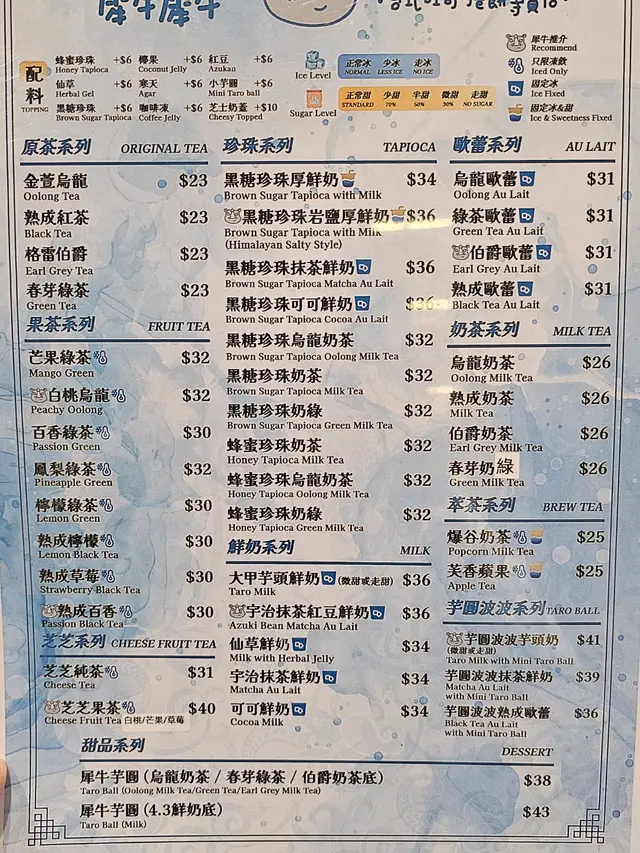 犀牛犀牛
配料
TOPPING
蜂蜜珍珠 +$6 椰果 +$6 紅豆 +$6
Honey Tapioca Coconut Jelly Azukan
仙草 +$6 寒天 +$6 小芋圓 +$6
Herbal Gel Agar Mini Taro ball
黑糖珍珠 +$6 咖啡凍 +$6 芝士奶蓋 +$10
Brown Sugar Tapioca Coffee Jelly Cheesy Topped
Ice Level
正常冰 少冰 走冰
NORMAL LESS ICE NO ICE
Sugar Level
正常甜 少甜 半甜 微甜 走甜
STANDARD 70% 50% 30% NO SUGAR
犀牛推介
Recommend
只限凍飲
Iced Only
固定冰
Ice Fixed
固定冰&甜
Ice & Sweetness Fixed
原茶系列 ORIGINAL TEA
金萱烏龍 $23
Oolong Tea
熟成紅茶 $23
Black Tea
格雷伯爵 $23
Earl Grey Tea
春芽綠茶 $23
Green Tea
果茶系列 FRUIT TEA
芒果綠茶 $32
Mango Green
白桃烏龍 $32
Peachy Oolong
百香綠茶 $30
Passion Green
鳳梨綠茶 $32
Pineapple Green
檸檬綠茶 $30
Lemon Green
熟成檸檬 $30
Lemon Black Tea
熟成草莓 $30
Strawberry Black Tea
熟成百香 $30
Passion Black Tea
芝芝系列 CHEESE FRUIT TEA
芝芝純茶 $31
Cheese Tea
芝芝果茶 $40
Cheese Fruit Tea 白桃/芒果/草莓
珍珠系列 TAPIOCA
黑糖珍珠厚鮮奶 $34
Brown Sugar Tapioca with Milk
黑糖珍珠岩鹽厚鮮奶 $36
Brown Sugar Tapioca with Milk
(Himalayan Salty Style)
黑糖珍珠抹茶鮮奶 $36
Brown Sugar Tapioca Matcha Au Lait
黑糖珍珠可可鮮奶 $36
Brown Sugar Tapioca Cocoa Au Lait
黑糖珍珠烏龍奶茶 $32
Brown Sugar Tapioca Oolong Milk Tea
黑糖珍珠奶茶 $32
Brown Sugar Tapioca Milk Tea
黑糖珍珠奶綠 $32
Brown Sugar Tapioca Green Milk Tea
蜂蜜珍珠奶茶 $32
Honey Tapioca Milk Tea
蜂蜜珍珠烏龍奶茶 $32
Honey Tapioca Oolong Milk Tea
蜂蜜珍珠奶綠 $32
Honey Tapioca Green Milk Tea
鮮奶系列 MILK
大甲芋頭鮮奶 (微甜或走甜) $36
Taro Milk
宇治抹茶紅豆鮮奶 $36
Azuki Bean Matcha Au Lait
仙草鮮奶 $34
Milk with Herbal Jelly
宇治抹茶鮮奶 $34
Matcha Au Lait
可可鮮奶 $34
Cocoa Milk
歐蕾系列 AU LAIT
烏龍歐蕾 $31
Oolong Au Lait
綠茶歐蕾 $31
Green Tea Au Lait
伯爵歐蕾 $31
Earl Grey Au Lait
熟成歐蕾 $31
Black Tea Au Lait
奶茶系列 MILK TEA
烏龍奶茶 $26
Oolong Milk Tea
熟成奶茶 $26
Milk Tea
伯爵奶茶 $26
Earl Grey Milk Tea
春芽奶綠 $26
Green Milk Tea
萃茶系列 BREW TEA
爆谷奶茶 $25
Popcorn Milk Tea
芙香蘋果 $25
Apple Tea
芋圓波波系列 TARO BALL
芋圓波波芋頭奶 $41
(微甜或走甜)
Taro Milk with Mini Taro Ball
芋圓波波抹茶鮮奶 $39
Matcha Au Lait
with Mini Taro Ball
芋圓波波熟成歐蕾 $36
Black Tea Au Lait
with Mini Taro Ball
甜品系列 DESSERT
犀牛芋圓 (烏龍奶茶 / 春芽綠茶 / 伯爵奶茶底) $38
Taro Ball (Oolong Milk Tea/Green Tea/Earl Grey Milk Tea)
犀牛芋圓 (4.3鮮奶底) $43
Taro Ball (Milk)